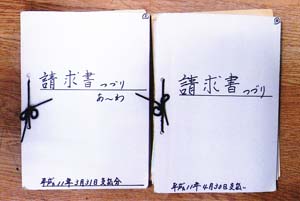 請求書つづり
あ〜わ
平成11年3月31日支払分
請求書つづり
平成11年4月30日支払〃